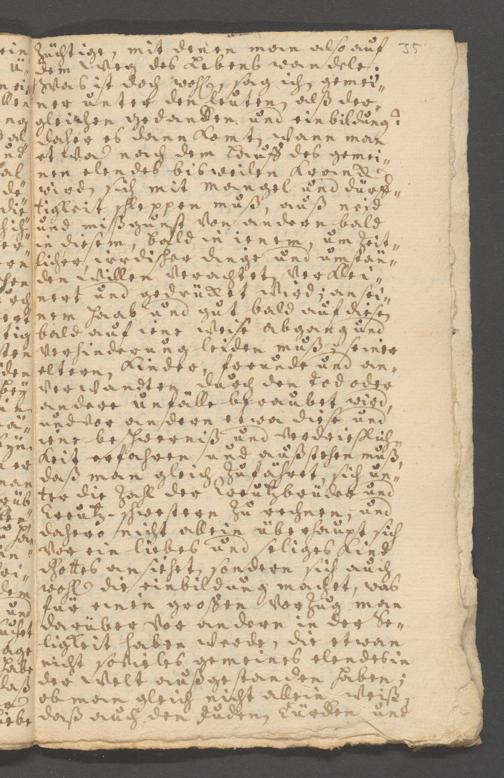 35
züchtige, mit denen man also auf
dem Weg des Lebens wandele.
Was ist doch wohl, sag ich, gemei-
ner unter den leuten, alß der-
gleichen gedancken und einbildung?
daher es dann komt, wann man
etwas nach dem Lauff des gemei-
nen elendes bisweilen kranck
wird, sich mit mangel und dürf-
tigkeit schleppen muß, auß neid
und mißgunst von andern bald
in diesem, bald in jenem, um zeit-
licher irrdischer dinge und umstän-
den willen verachtet, verklei-
nert und gedrücket wird; an sei-
nem haab und gut bald auf diese
bald auf jene weise abgang und
verhinderung leiden muß; seiner
eltern, kinder, freunde und an-
verwandten durch den tod oder
andere unfälle beraubet wird,
und vor andern etwa diese und
jene beschwerniß und verdrießlich-
keit erfahren und außstehen muß,
daß man gleich zufähret, sich un-
ter die Zahl der Creutzbrüder und
Creutz-schwestern zu rechnen, und
dahero nicht allein überhaupt sich
vor ein liebes und seliges Kind
Gottes ansiehet, sondern sich auch
wohl die einbildung machet, was
für einen großen Vorzug man
darüber vor andern in der Se-
ligkeit haben werde, die etwan
nicht so vieles gemeines elendes in
der Welt außgestanden haben;
ob man gleich nicht allein weiß,
daß auch den Juden, Türcken und